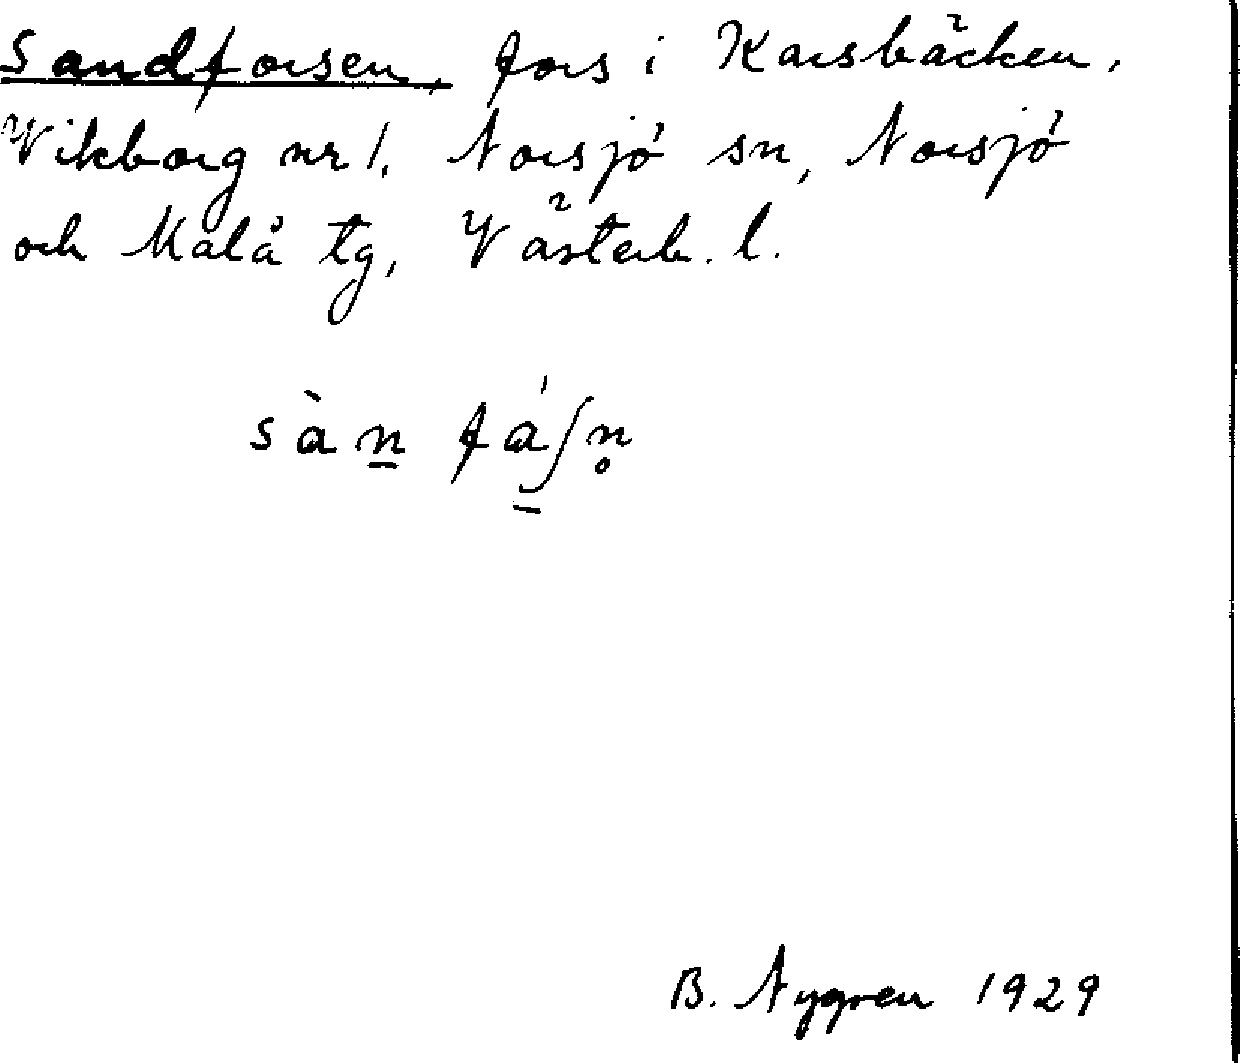 Sandforsen, fors i Karsbäcken,
Vikborg nr 1, Norsjö sn, Norsjö
och Malå tg, Västerb. l.
sàn̲ fá̲ʃn̥
B. Nygren 1929